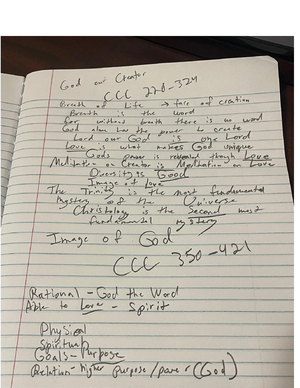 God our Creator
CCC 270-324
Breath of Life → face of creation
Breath is the word
for without breath there is no word
God alone has the power to create
Lord our God is one Lord
Love is what makes God unique
God's power is revealed through Love
Meditation on Creator is Meditation on Love
Diversity is Good
Image of Love
The Trinity is the most fundamental
Mystery of the Universe
Christology is the Second most
fundamental mystery
Image of God
CCC 350-421
Rational - God the Word
Able to Love - Spirit
Physical
Spiritual
Goals - Purpose
Relation - higher purpose/power (God)